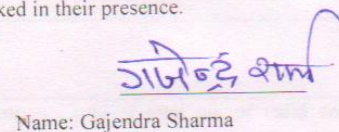 ked in their presence.
गजेन्द्र शर्मा
Name: Gajendra Sharma